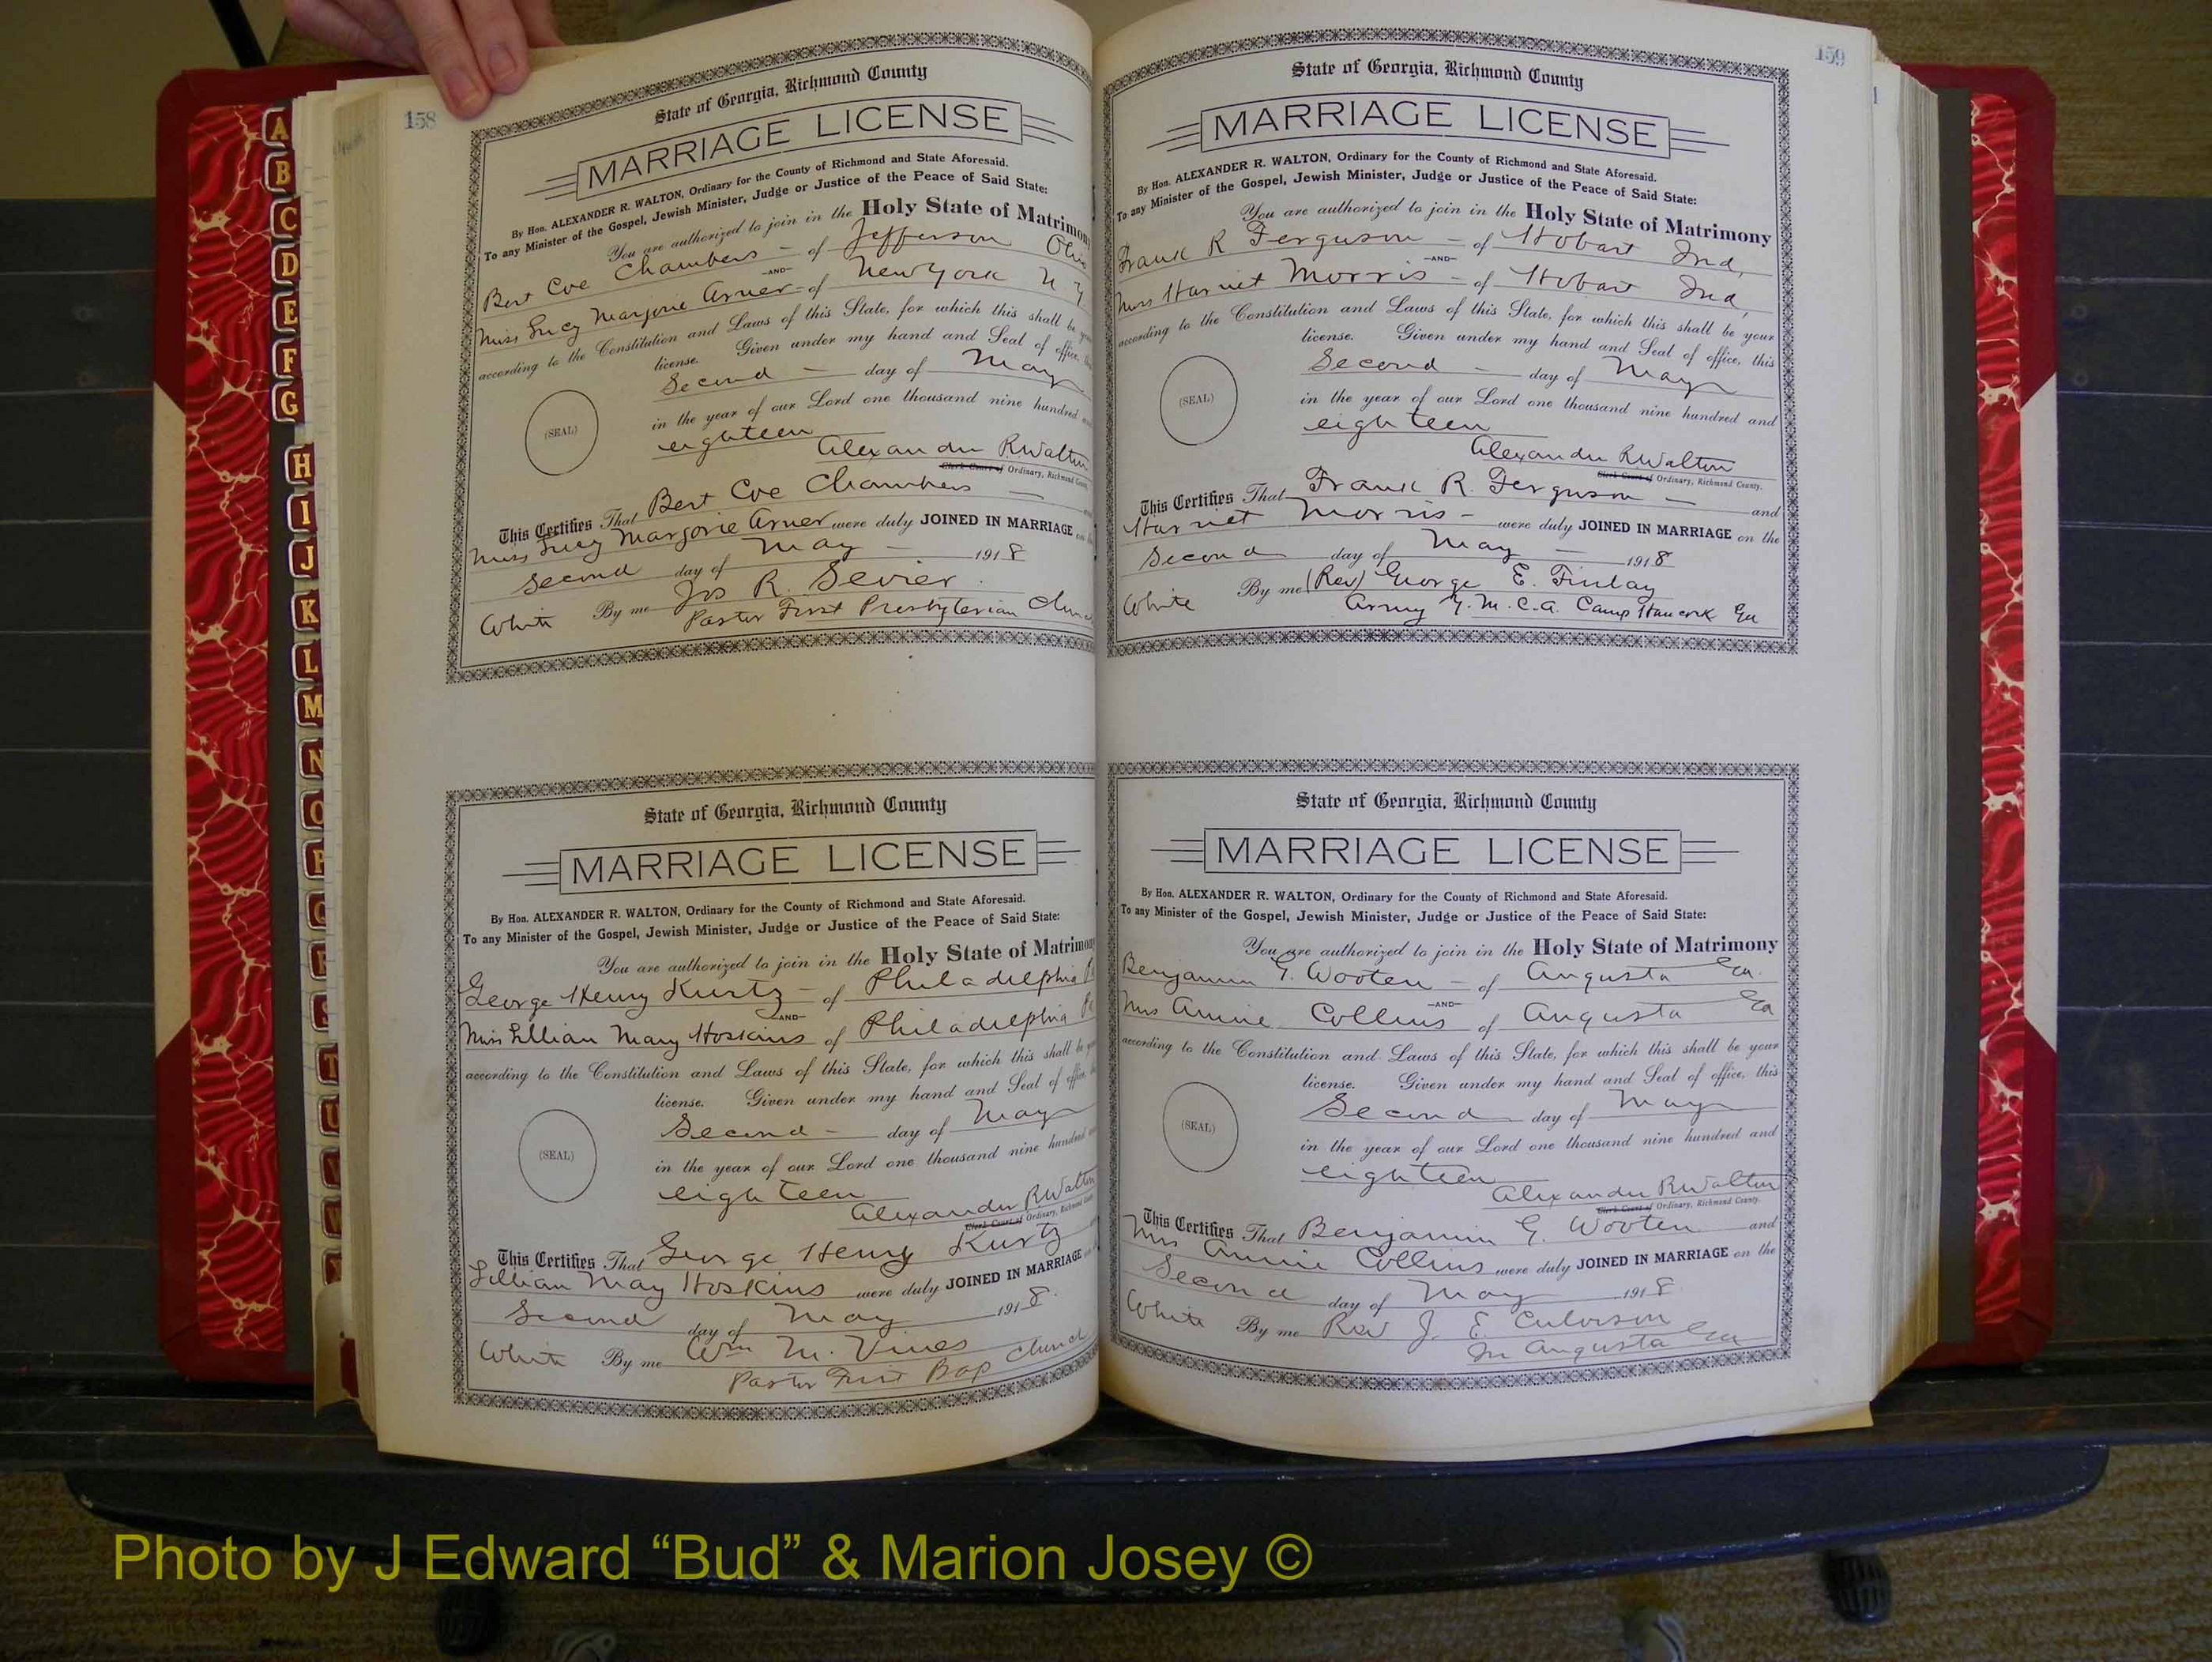 158
State of Georgia, Richmond County
MARRIAGE LICENSE
By Hon. ALEXANDER R. WALTON, Ordinary for the County of Richmond and State Aforesaid.
To any Minister of the Gospel, Jewish Minister, Judge or Justice of the Peace of Said State:
You are authorized to join in the Holy State of Matrimony
Bert Coe Chambers - of Jefferson Ohio
-AND-
Miss Lucy Marjorie Arner - of New York N Y
according to the Constitution and Laws of this State, for which this shall be
license. Given under my hand and Seal of office,
Second - day of May
(SEAL)
in the year of our Lord one thousand nine hundred
eighteen
Alexander R Walton
Clerk Court of Ordinary, Richmond County
This Certifies That Bert Coe Chambers
Miss Lucy Marjorie Arner were duly JOINED IN MARRIAGE
Second day of May - 1918
White By me Jos R. Sevier
Pastor First Presbyterian Church
State of Georgia, Richmond County
MARRIAGE LICENSE
By Hon. ALEXANDER R. WALTON, Ordinary for the County of Richmond and State Aforesaid.
To any Minister of the Gospel, Jewish Minister, Judge or Justice of the Peace of Said State:
You are authorized to join in the Holy State of Matrimony
George Henry Kurtz - of Philadelphia
-AND-
Miss Lillian Mary Hoskins of Philadelphia
according to the Constitution and Laws of this State, for which this shall be
license. Given under my hand and Seal of office,
Second - day of May
(SEAL)
in the year of our Lord one thousand nine hundred
eighteen
Alexander R Walton
Clerk Court of Ordinary, Richmond County
This Certifies That George Henry Kurtz
Lillian May Hoskins were duly JOINED IN MARRIAGE
Second day of May 1918.
White By me Wm M. Vines
Pastor First Bap Church
159
State of Georgia, Richmond County
MARRIAGE LICENSE
By Hon. ALEXANDER R. WALTON, Ordinary for the County of Richmond and State Aforesaid.
To any Minister of the Gospel, Jewish Minister, Judge or Justice of the Peace of Said State:
You are authorized to join in the Holy State of Matrimony
Frank R Ferguson - of Hobart Ind,
-AND-
Miss Harriet Morris - of Hobart Ind,
according to the Constitution and Laws of this State, for which this shall be your
license. Given under my hand and Seal of office, this
Second - day of May
(SEAL)
in the year of our Lord one thousand nine hundred and
eighteen
Alexander R Walton
Clerk Court of Ordinary, Richmond County.
This Certifies That Frank R. Ferguson - and
Harriet Morris - were duly JOINED IN MARRIAGE on the
Second day of May - 1918
White By me (Rev) George E. Finlay
Army Y.M.C.A. Camp Hancock Ga
State of Georgia, Richmond County
MARRIAGE LICENSE
By Hon. ALEXANDER R. WALTON, Ordinary for the County of Richmond and State Aforesaid.
To any Minister of the Gospel, Jewish Minister, Judge or Justice of the Peace of Said State:
You are authorized to join in the Holy State of Matrimony
Benjamin G. Wooten - of Augusta Ga.
-AND-
Mrs Annie Collins of Augusta Ga
according to the Constitution and Laws of this State, for which this shall be your
license. Given under my hand and Seal of office, this
Second day of May
(SEAL)
in the year of our Lord one thousand nine hundred and
eighteen
Alexander R Walton
Clerk Court of Ordinary, Richmond County.
This Certifies That Benjamin G. Wooten and
Mrs Annie Collins were duly JOINED IN MARRIAGE on the
Second day of May 1918
White By me Rev J. E. Culverson
In Augusta Ga
A
B
C
D
E
F
G
H
I
J
K
L
M
N
O
P
Q
R
S
T
U
V
W
Photo by J Edward “Bud” & Marion Josey ©